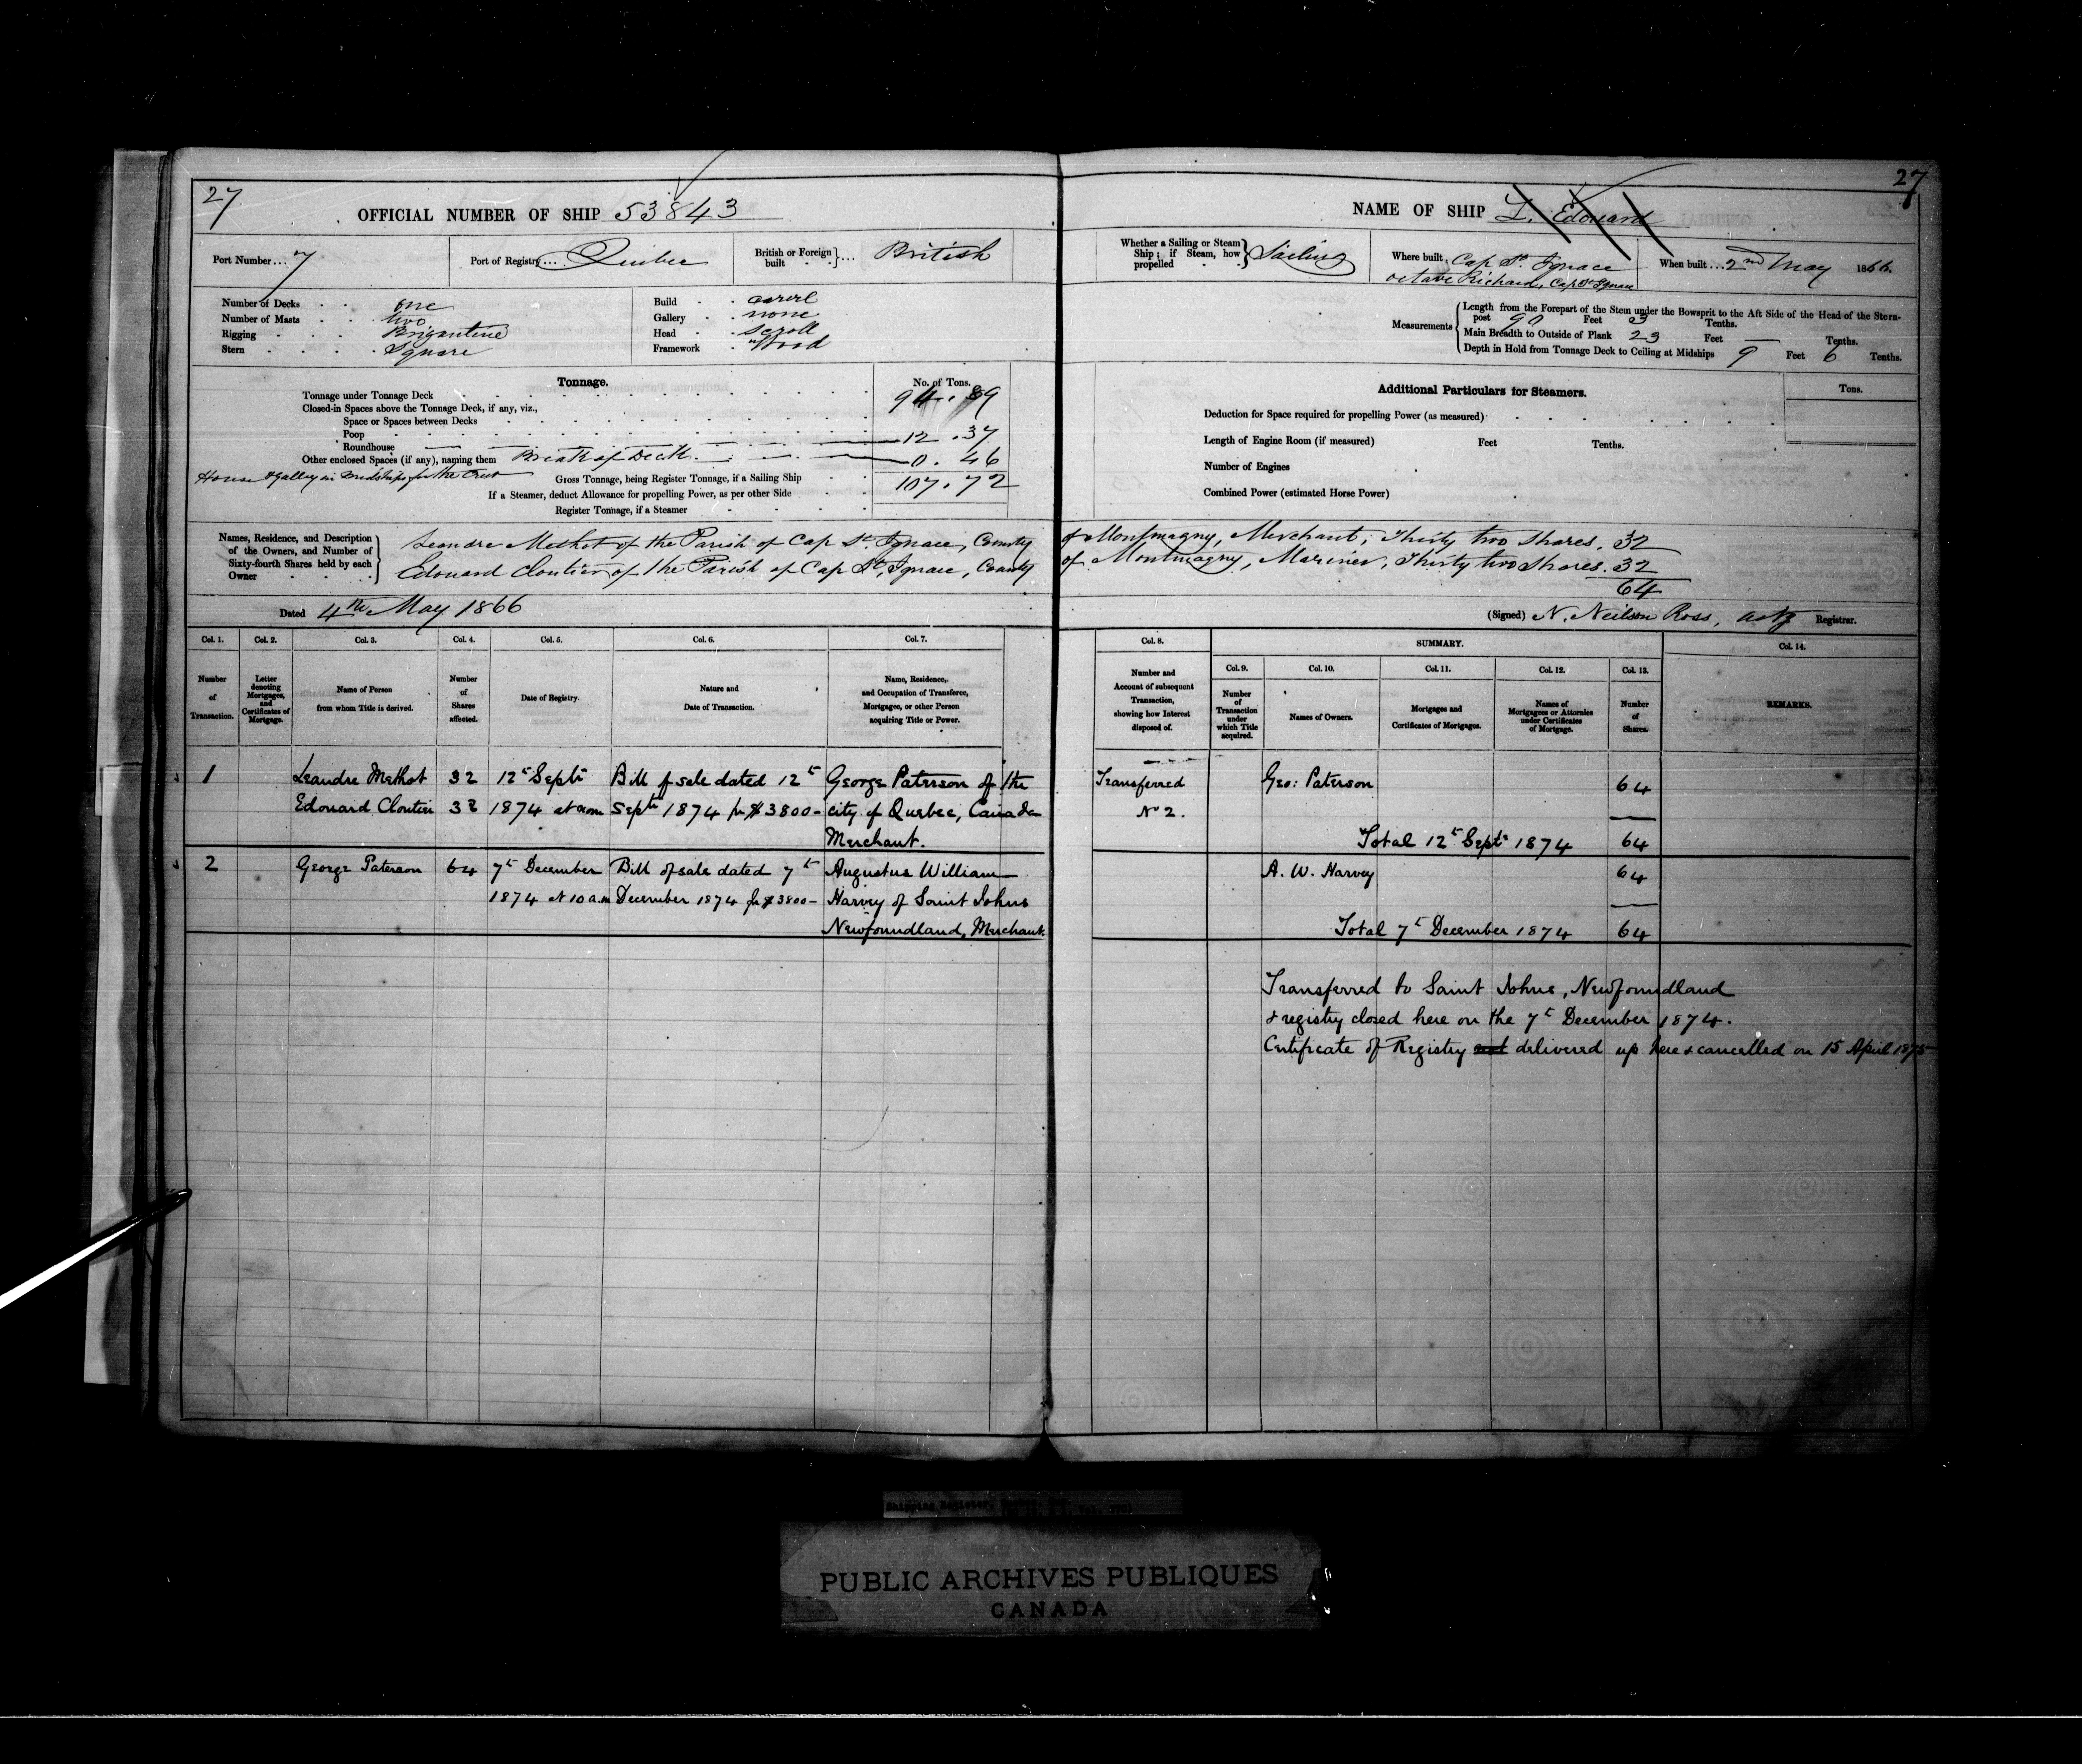 27
OFFICIAL NUMBER OF SHIP 53843
Port Number... 7
Port of Registry... Quebec
British or Foreign built } ... British
Number of Decks one
Number of Masts two
Rigging Brigantine
Stern Square
Build carvel
Gallery none
Head Scroll
Framework Wood
Tonnage.
No. of Tons.
Tonnage under Tonnage Deck 94.89
Closed-in Spaces above the Tonnage Deck, if any, viz.,
Space or Spaces between Decks
Poop 12.37
Roundhouse
Other enclosed Spaces (if any), naming them Break of Deck 0.46
House & galley in Midships for the Crew
Gross Tonnage, being Register Tonnage, if a Sailing Ship 107.72
If a Steamer, deduct Allowance for propelling Power, as per other Side
Register Tonnage, if a Steamer
Names, Residence, and Description of the Owners, and Number of Sixty-fourth Shares held by each Owner
Leandre Methot of the Parish of Cap St. Ignace, County
Edouard Cloutier of the Parish of Cap St. Ignace, County
Dated 4th May 1866
Col. 1. Col. 2. Col. 3. Col. 4. Col. 5. Col. 6. Col. 7.
Number of Transaction.
Letter denoting Mortgages, and Certificates of Mortgage.
Name of Person from whom Title is derived.
Number of Shares affected.
Date of Registry.
Nature and Date of Transaction.
Name, Residence, and Occupation of Transferee, Mortgagee, or other Person acquiring Title or Power.
1 Leandre Methot 32 12th Septr Bill of sale dated 12th George Paterson of the
Edouard Cloutier 32 1874 at noon Septr 1874 for $3800- city of Quebec, Canada
Merchant.
2 George Paterson 64 7th December Bill of sale dated 7th Augustus William
1874 at 10 a.m December 1874 for $3800- Harvey of Saint Johns
Newfoundland, Merchant.
27
NAME OF SHIP L. Edouard
Whether a Sailing or Steam Ship; if Steam, how propelled } Sailing
Where built. Cap St. Ignace
Octave Richard, Cap St Ignace
When built... 2nd May 1866.
Measurements
Length from the Forepart of the Stem under the Bowsprit to the Aft Side of the Head of the Stern-
post 90 Feet 3 Tenths.
Main Breadth to Outside of Plank 23 Feet — Tenths.
Depth in Hold from Tonnage Deck to Ceiling at Midships 9 Feet 6 Tenths.
Additional Particulars for Steamers.
Tons.
Deduction for Space required for propelling Power (as measured)
Length of Engine Room (if measured) Feet Tenths.
Number of Engines
Combined Power (estimated Horse Power)
of Montmagny, Merchant, Thirty two Shares. 32
of Montmagny, Mariner, Thirty two Shares. 32
64
(Signed) N. Neilson Ross, actg Registrar.
Col. 8. SUMMARY. Col. 14.
Col. 9. Col. 10. Col. 11. Col. 12. Col. 13.
Number and Account of subsequent Transaction, showing how Interest disposed of.
Number of Transaction under which Title acquired.
Names of Owners.
Mortgages and Certificates of Mortgages.
Names of Mortgagees or Attornies under Certificates of Mortgage.
Number of Shares.
REMARKS.
Transferred Geo: Paterson 64
No 2.
Total 12th Septr 1874 64
A. W. Harvey 64
Total 7th December 1874 64
Transferred to Saint Johns, Newfoundland
& registry closed here on the 7th December 1874.
Certificate of Registry not delivered up here & cancelled on 15 April 1875
Shipping Register,
PUBLIC ARCHIVES PUBLIQUES
CANADA